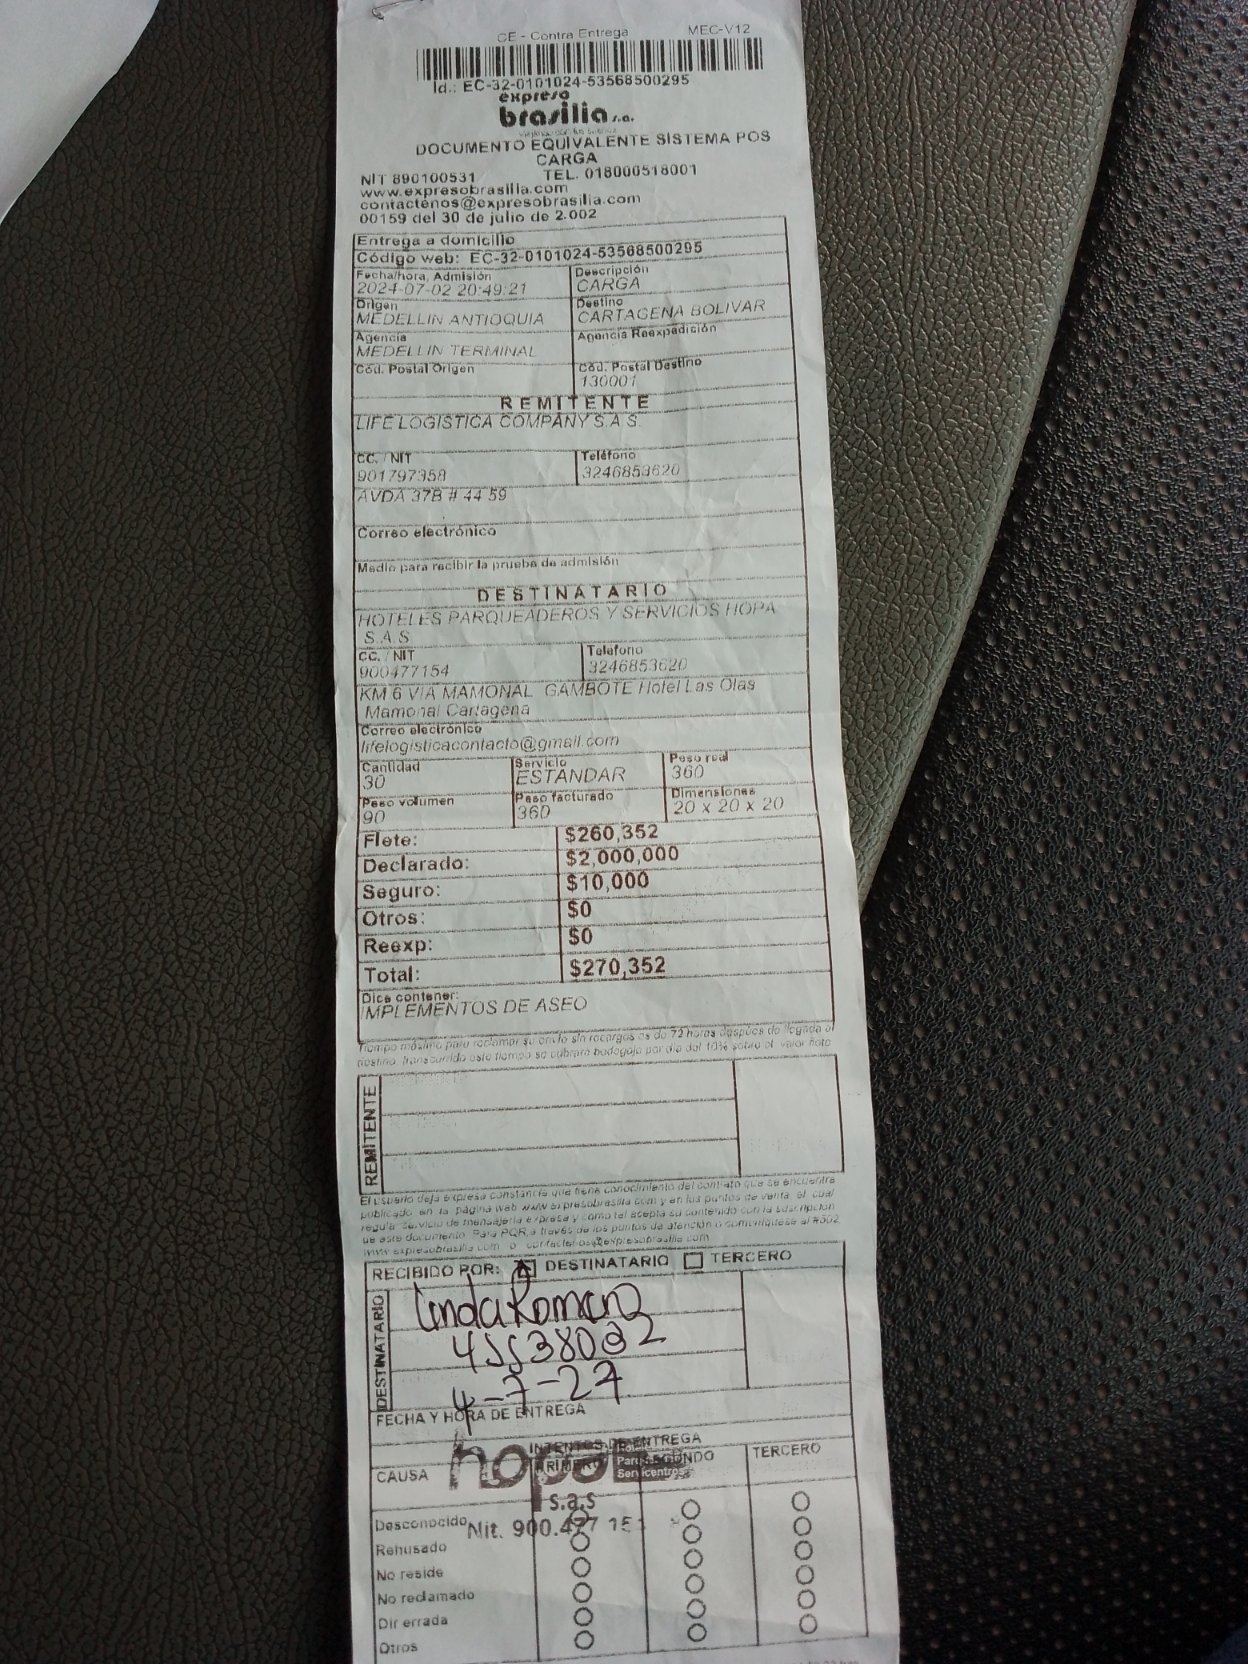 CE - Contra Entrega MEC-V12
Id.: EC-32-0101024-53568500295
expreso
brasilia s.a.
DOCUMENTO EQUIVALENTE SISTEMA POS
CARGA
NIT 890100531 TEL. 018000518001
www.expresobrasilia.com
contactenos@expresobrasilia.com
00159 del 30 de julio de 2.002
Entrega a domicilio
Código web: EC-32-0101024-53568500295
Fecha/hora, Admisión Descripción
2024-07-02 20:49:21 CARGA
Origen Destino
MEDELLIN ANTIOQUIA CARTAGENA BOLIVAR
Agencia Agencia Reexpedición
MEDELLIN TERMINAL
Cód. Postal Origen Cód. Postal Destino
130001
REMITENTE
LIFE LOGISTICA COMPANY S.A.S.
CC. / NIT Teléfono
901797358 3246853620
AVDA 37B # 44 59
Correo electrónico
Medio para recibir la prueba de admisión
DESTINATARIO
HOTELES PARQUEADEROS Y SERVICIOS HOPA
S.A.S
CC. / NIT Teléfono
900477154 3246853620
KM 6 VIA MAMONAL GAMBOTE Hotel Las Olas
Mamonal Cartagena
Correo electrónico
lifelogisticacontacto@gmail.com
Cantidad Servicio Peso real
30 ESTANDAR 360
Peso volumen Peso facturado Dimensiones
90 360 20 x 20 x 20
Flete: $260,352
Declarado: $2,000,000
Seguro: $10,000
Otros: $0
Reexp: $0
Total: $270,352
Dice contener:
IMPLEMENTOS DE ASEO
Tiempo máximo para reclamar su envío sin recargos es de 72 horas después de llegada al
destino, transcurrido este tiempo se cobrará bodegaje por día del 10% sobre el valor flete
REMITENTE
El usuario deja expresa constancia que tiene conocimiento del contrato que se encuentra
publicado en la página web www.expresobrasilia.com y en los puntos de venta, el cual
regula servicio de mensajería expresa y como tal acepta su contenido con la suscripción
de este documento. Para PQR a través de los puntos de atención o comuníquese al #502
www.expresobrasilia.com o contactenos@expresobrasilia.com
RECIBIDO POR: DESTINATARIO TERCERO
DESTINATARIO
Linda Roman
4-7-27
FECHA Y HORA DE ENTREGA
INTENTOS DE ENTREGA
CAUSA PRIMERO SEGUNDO TERCERO
hopa
s.a.s
Nit. 900.477 15
Desconocido
Rehusado
No reside
No reclamado
Dir errada
Otros